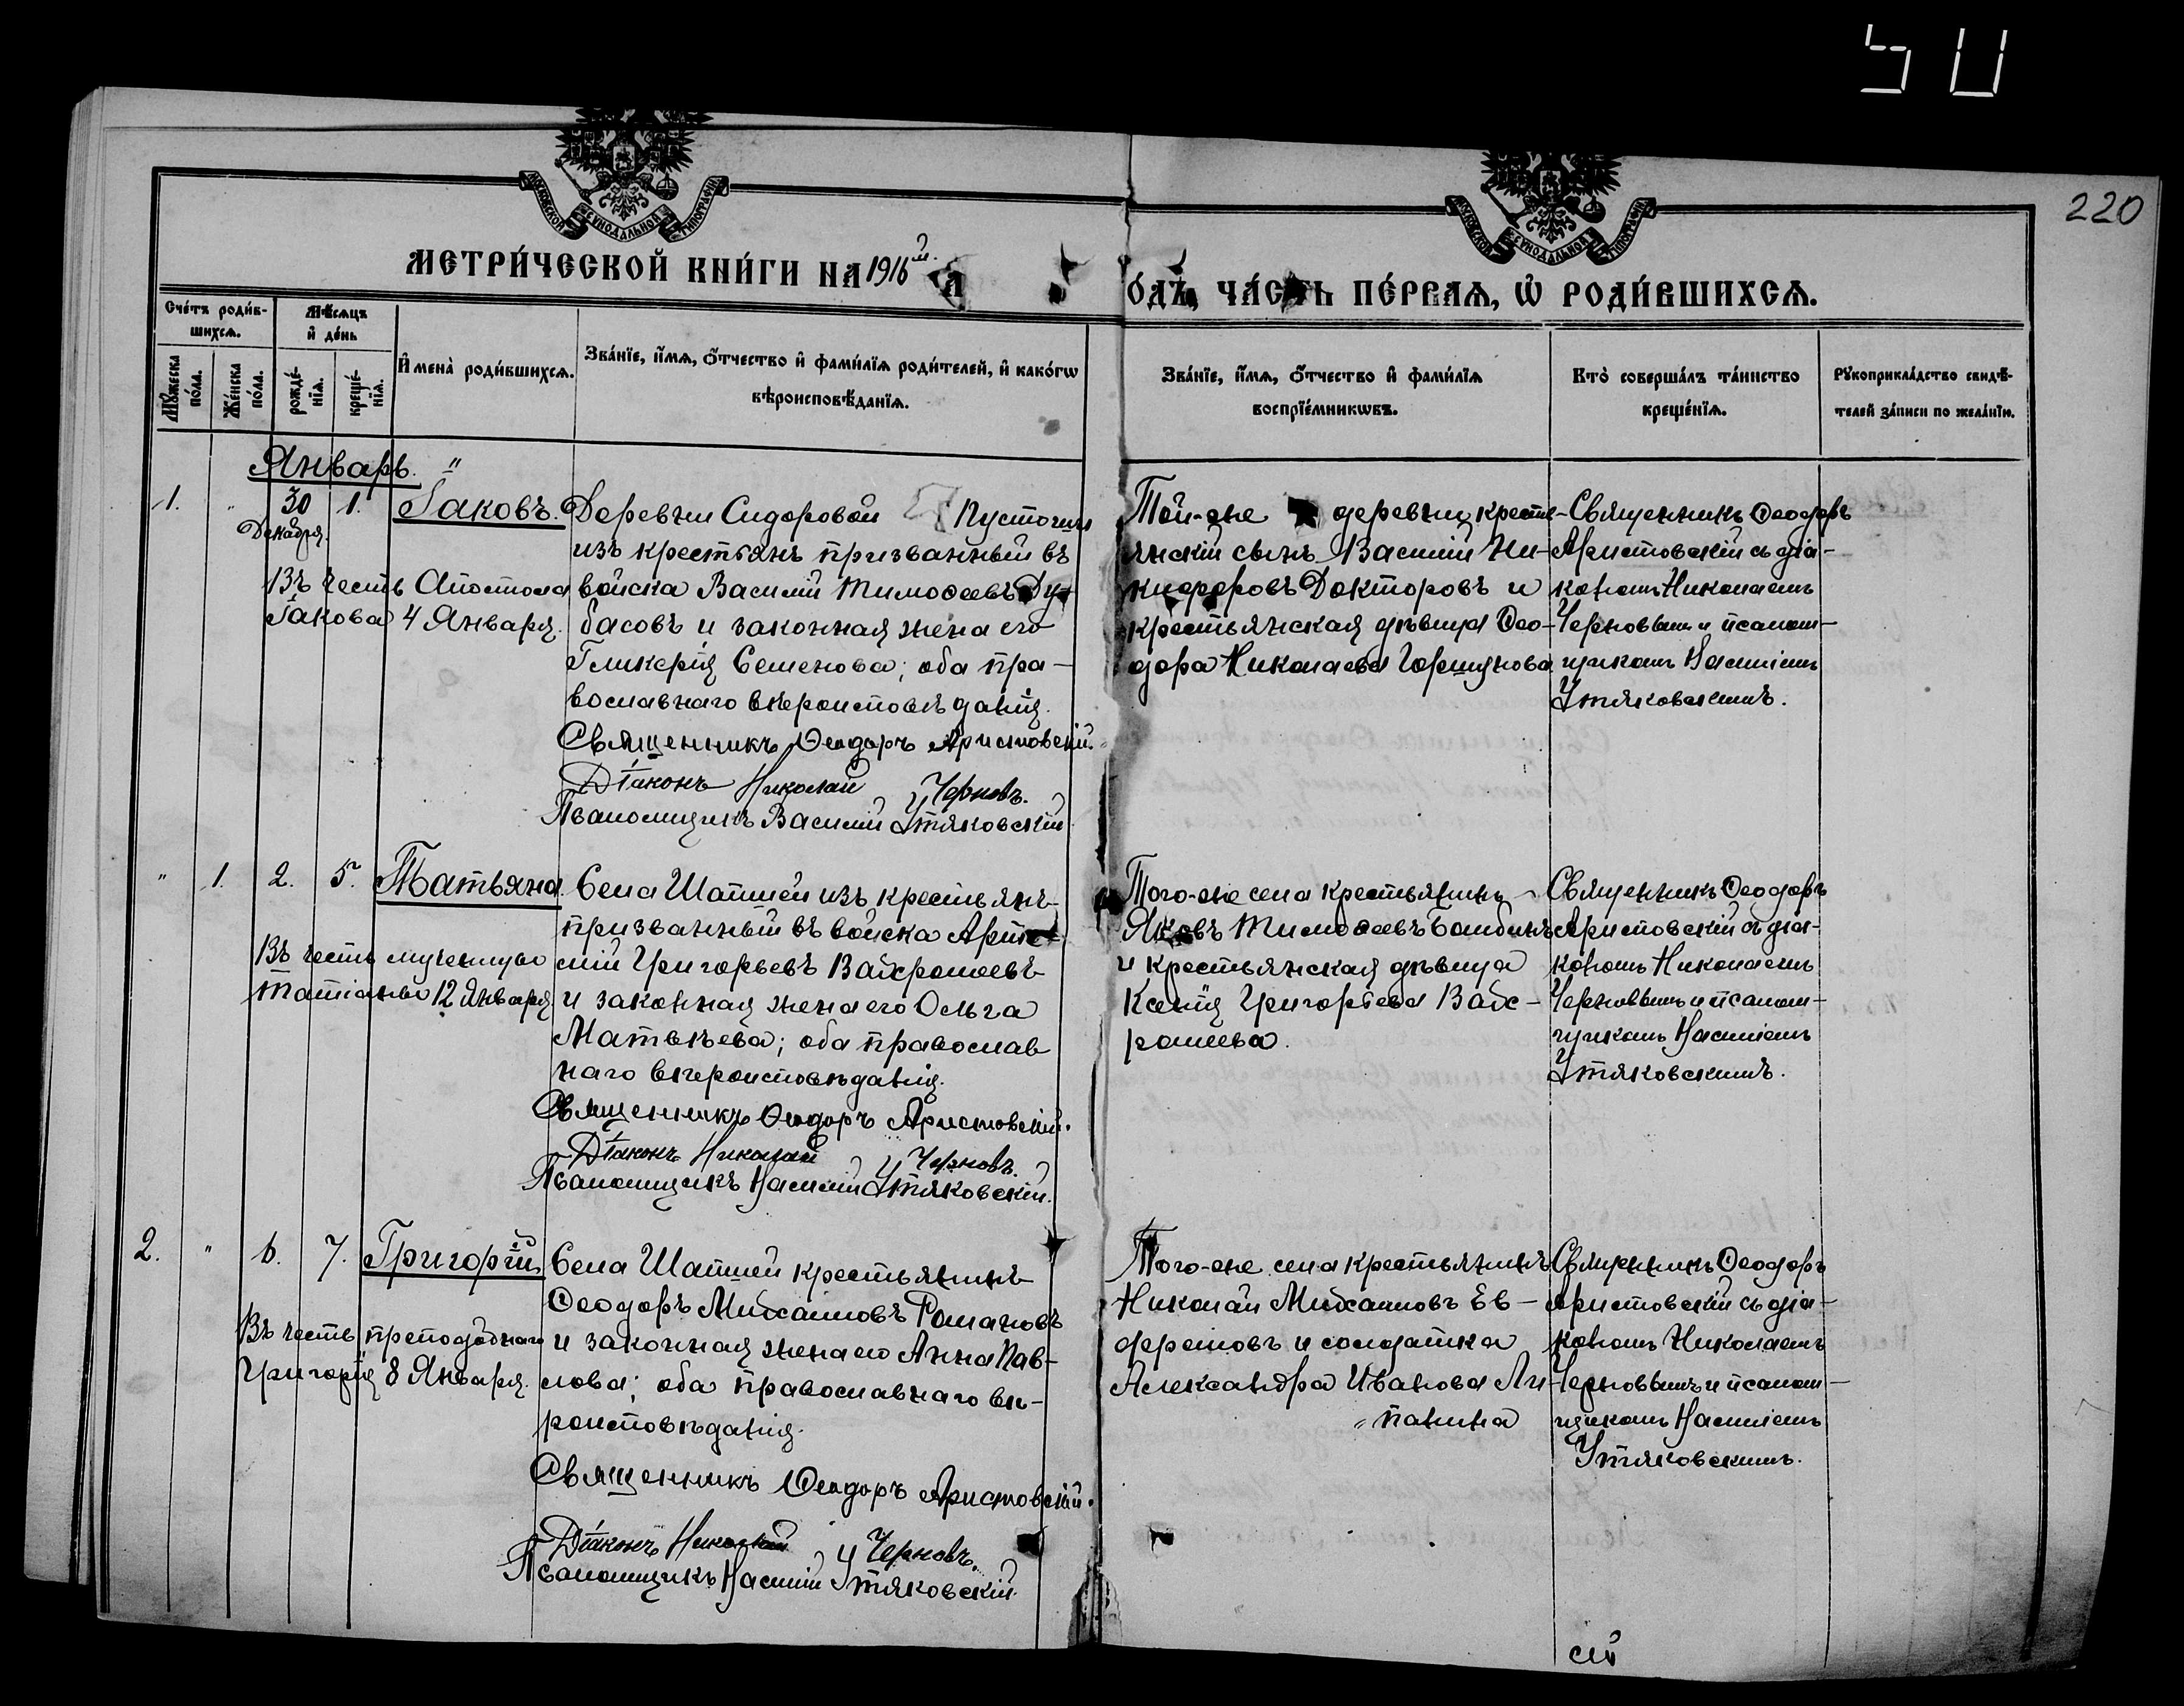 220
МОСКОВСКОЙ СѴНОДАЛЬНОЙ ТИПОГРАФІИ
МОСКОВСКОЙ СѴНОДАЛЬНОЙ ТИПОГРАФІИ
МЕТРИ́ЧЕСКОЙ КНИ́ГИ НА 1916 й.
О́ДЪ, ЧА́СТЬ ПЕ́РВАЯ, Ѡ҆ РОДИ́ВШИХСѦ.
Сче́тъ роди́в-
шихсѧ.
Мѣ́сѧцъ
и҆ де́нь
Мꙋ́жеска
по́ла.
Же́нска
по́ла.
рожде́-
нїѧ.
креще́-
нїѧ.
И҆мена̀ роди́вшихсѧ.
Зва́нїе, и҆́мѧ, ѻ҆́тчество и҆ фами́лїѧ роди́телей, и҆ како́гѡ
вѣроисповѣ́данїѧ.
Зва́нїе, и҆́мѧ, ѻ҆́тчество и҆ фами́лїѧ
воспрїе́мникѡвъ.
Кто̀ соверша́лъ та́инство
креще́нїѧ.
Рꙋкоприкла́дство свидѣ́-
телей за́писи по жела́нїю.
Январь.
1. " 30 1. Іаковъ.
Декабря.
Въ честь Апостола
Іакова 4 Января.
Деревни Сидоровой Пустоши
изъ крестьянъ призванный въ
войска Василій Тимоѳеевъ Ду-
басовъ и законная жена его
Гликерія Семенова; оба пра-
вославнаго вѣроисповѣданія.
Священникъ Ѳеодоръ Аристовскій.
Діаконъ Николай Черновъ.
Псаломщикъ Василій Утяковскій.
Той-же деревни кресть-
янскій сынъ Василій Ни-
кифоровъ Докторовъ и
крестьянская дѣвица Ѳео-
дора Николаева Горшунова
Священникъ Ѳеодоръ
Аристовскій съ діа-
кономъ Николаемъ
Черновымъ и псалом-
щикомъ Василіемъ
Утяковскимъ.
" 1. 2. 5. Татьяна.
Въ честь мученицы
Татіаны 12 Января
Села Шапшей изъ крестьянъ
призванный въ войска Арте-
мій Григорьевъ Вахромеевъ
и законная жена его Ольга
Матвѣева; оба православ
наго вѣроисповѣданія.
Священникъ Ѳеодоръ Аристовскій.
Діаконъ Николай Черновъ.
Псаломщикъ Василій Утяковскій.
Того-же села крестьянинъ
Яковъ Тимоѳеевъ
и крестьянская дѣвица
Ксенія Григорьева Вах-
ромеева.
Священникъ Ѳеодоръ
Аристовскій съ діа-
кономъ Николаемъ
Черновымъ и псалом-
щикомъ Василіемъ
Утяковскимъ.
2. " 6. 7. Григорій
Въ честь преподобнаго
Григорія 8 Января.
Села Шапшей крестьянинъ
Ѳеодоръ Михаиловъ Романовъ
и законная жена его Анна Пав-
лова; оба православнаго вѣ-
роисповѣданія.
Священникъ Ѳеодоръ Аристовскій.
Діаконъ Николай Черновъ.
Псаломщикъ Василій Утяковскій.
Того-же села крестьянинъ
Николай Михаиловъ Ев-
феретовъ и солдатка
Александра Иванова Ли-
панина
Священникъ Ѳеодоръ
Аристовскій съ діа-
кономъ Николаемъ
Черновымъ и псалом-
щикомъ Василіемъ
Утяковскимъ.